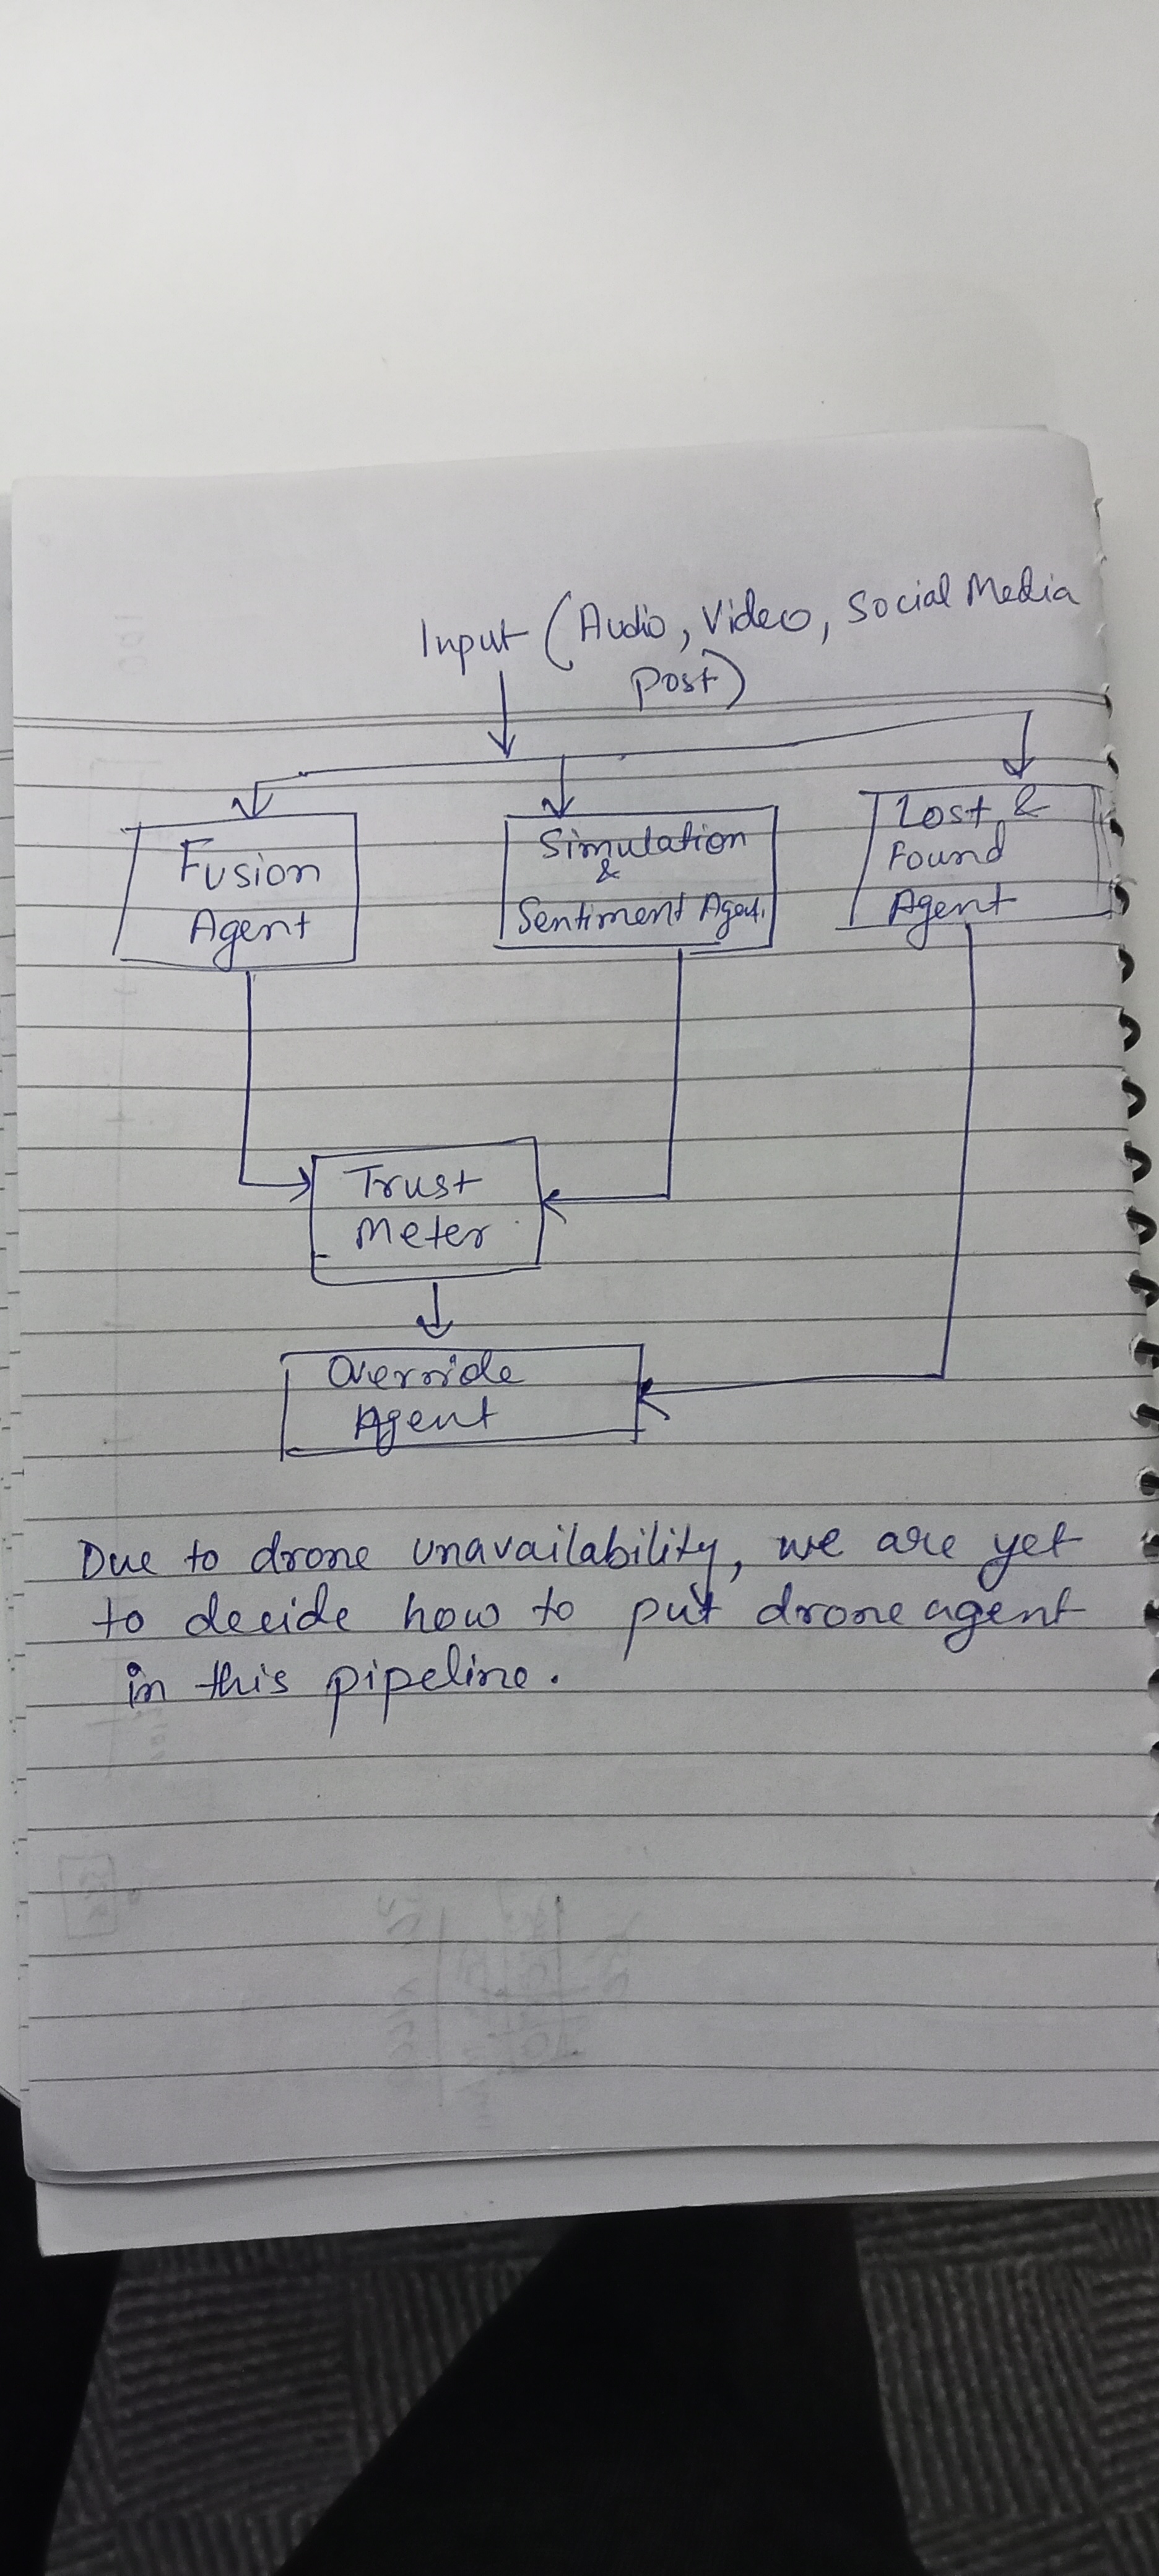 Input (Audio, Video, Social Media
Post)
Fusion
Agent
Simulation
&
Sentiment Agent.
Lost &
Found
Agent
Trust
Meter
Override
Agent
Due to drone unavailability, we are yet
to decide how to put drone agent
in this pipeline.